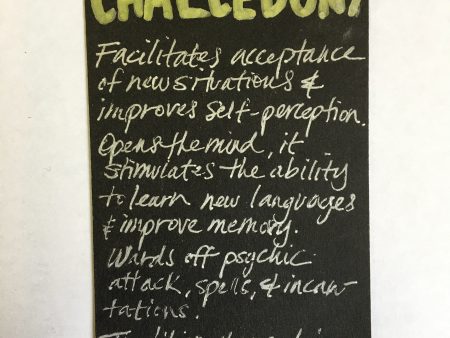 CHALCEDONY
Facilitates acceptance
of new situations &
improves self-perception.
Opens the mind, it
stimulates the ability
to learn new languages
& improve memory.
Wards off psychic
attack, spells, & incan-
tations.